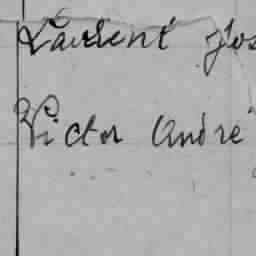 Laurent Jos
Victor André